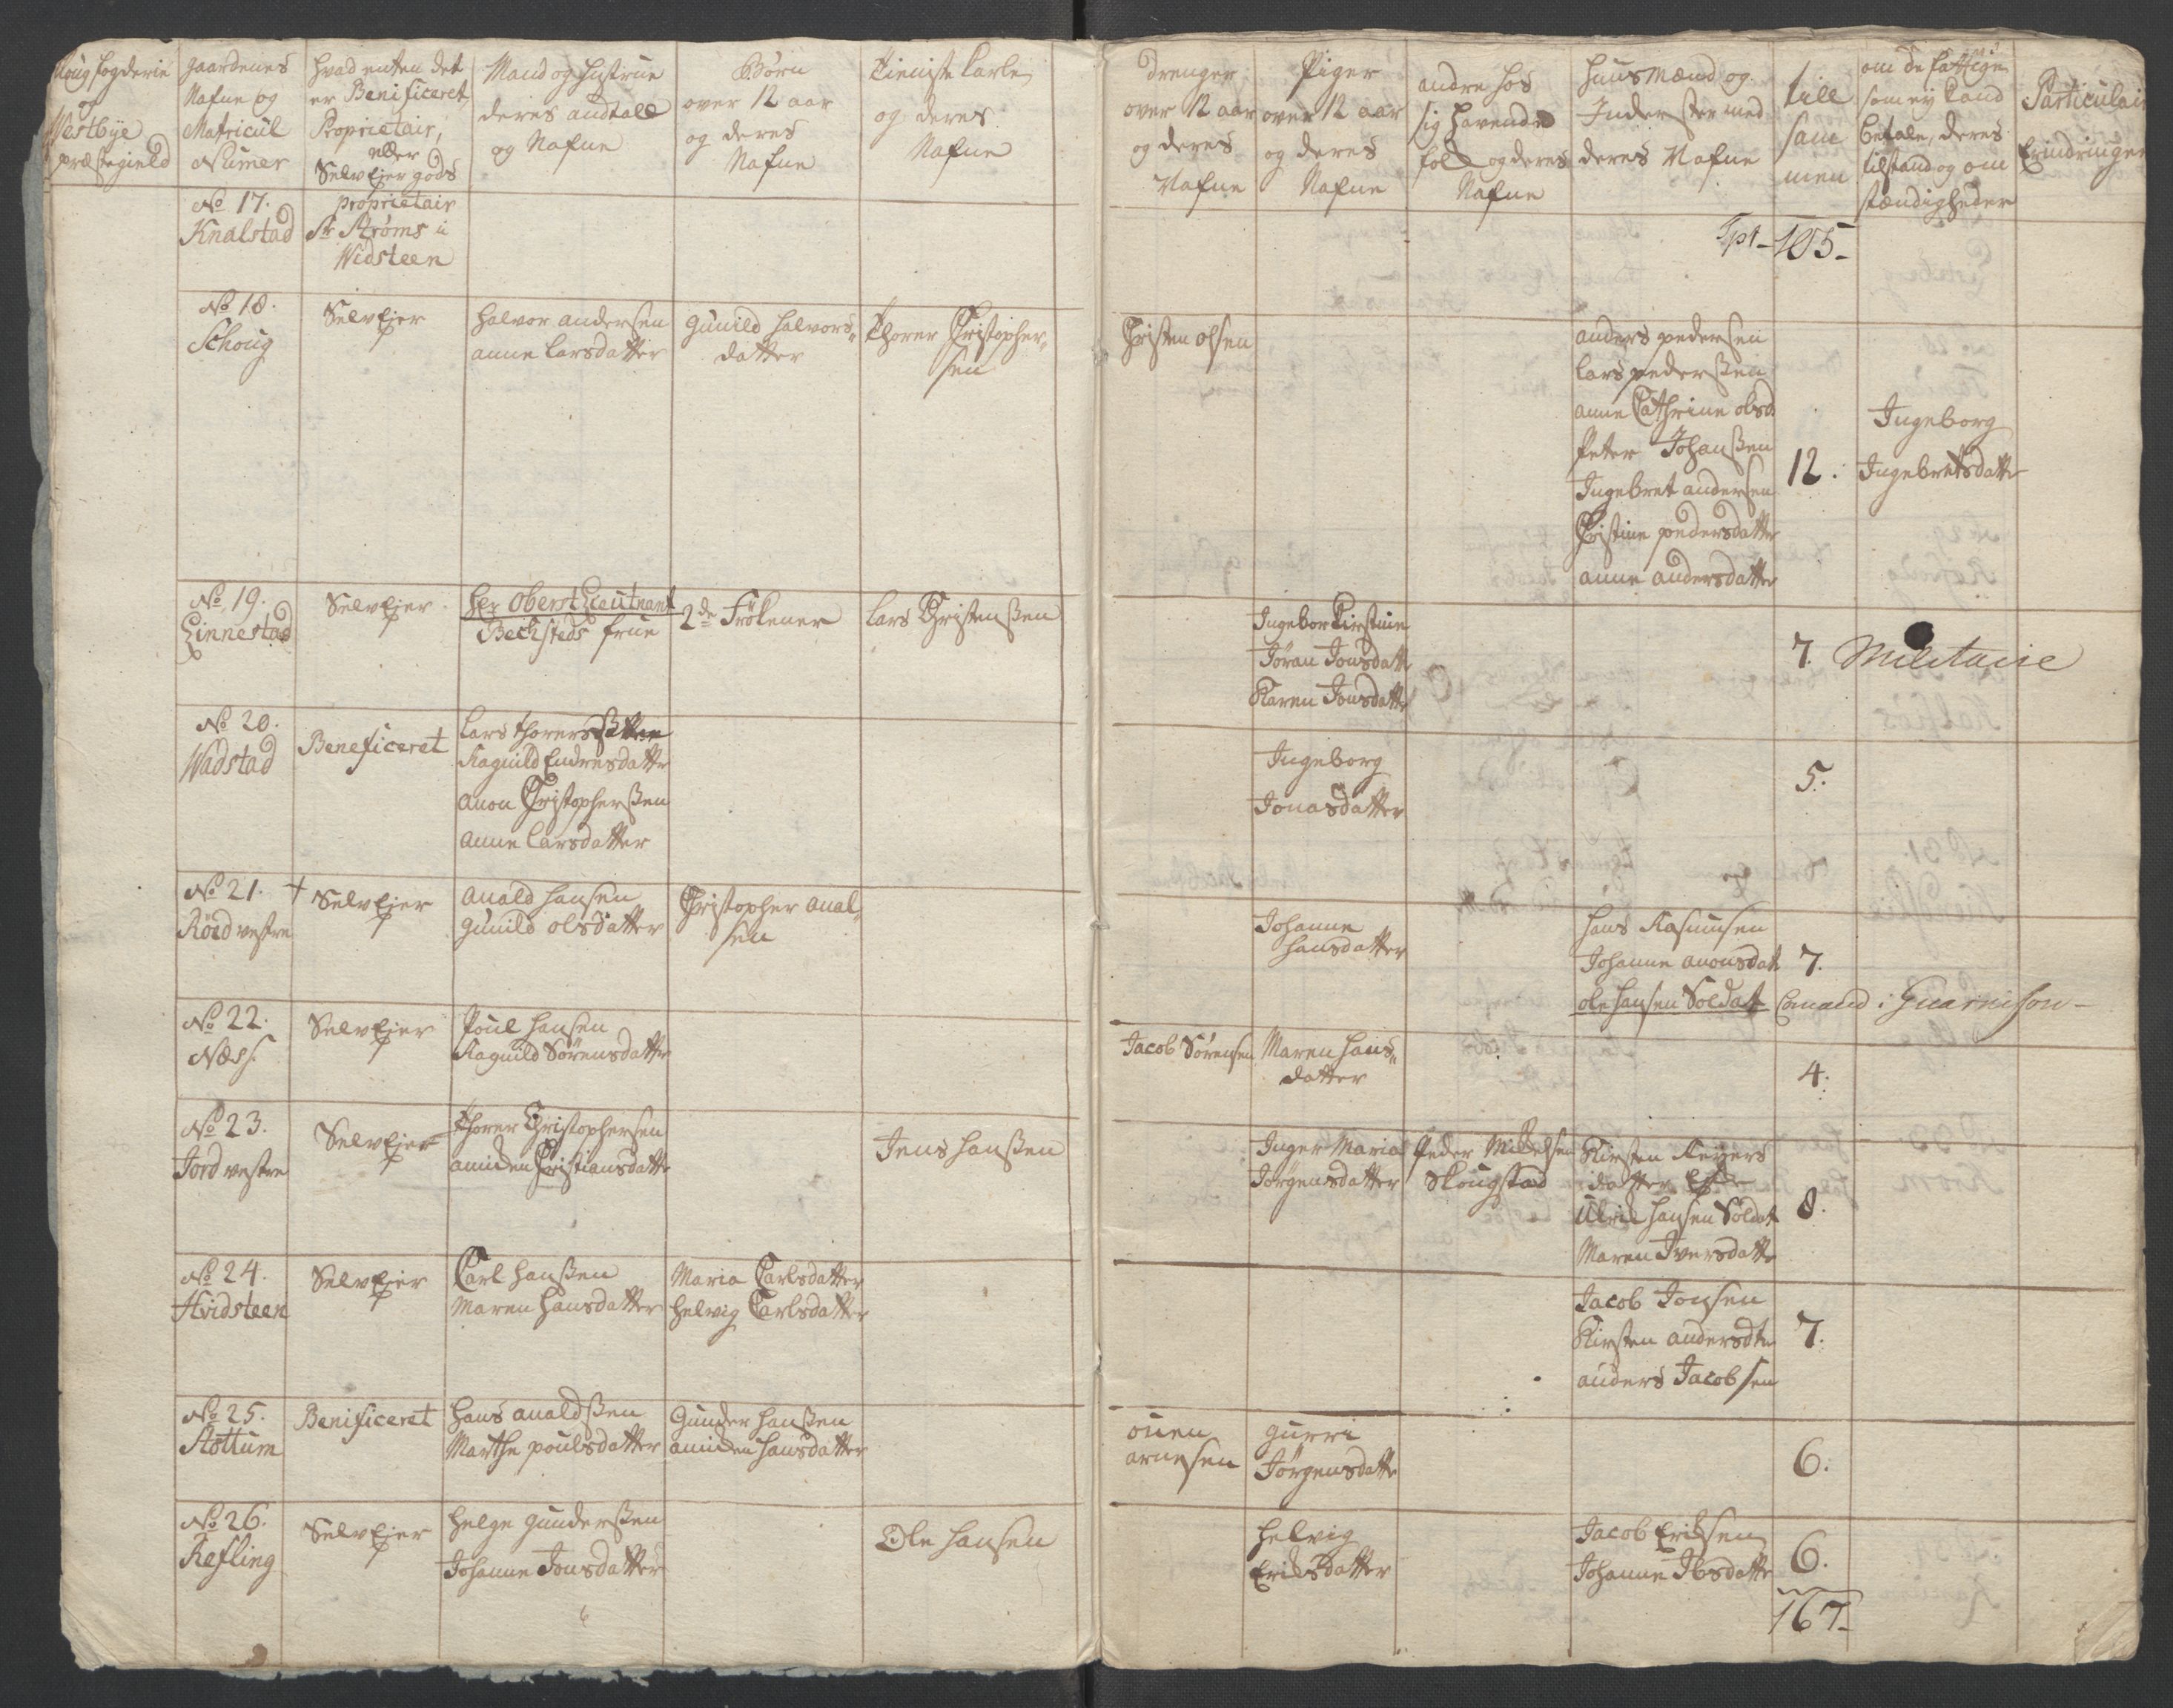 Moug fogderie
og
Westbye
præstegield
gaardenes
Nafne og
Matricul
Numer
hvad enten det
er Benificeret,
Proprietair,
eller
SelvEjer gods
Mand og Hustrue
deres andtall
og Nafne
Børn
over 12 aar
og deres
Nafne
Tieniste Karle
og deres
Nafne
drenger
over 12 aar
og deres
Nafne
Piger
over 12 aar
og deres
Nafne
andre hos
sig havende
folk og deres
Nafne
huusMænd og
Inderster med
deres Nafne
till
sam
men
om de fattige
som ej kand
betale, deres
tilstand og om
stændigheder
Particulair
Erindringer
No 17.
Knalstad
proprietair
Sr Strøms i
Widsteen
Tpt - 105 -
No 18.
Schoug
SelvEjer
Halvor Andersen
Anne Larsdatter
Gunild Halvors-
datter
Thorer Christopher-
sen
Christen Olsen
Anders Pedersen
Lars Pederssen
Anne Cathrine olsd
Peter Johanssen
Ingebret Andersen
Christine Pedersdatter
Anne Andersdatter
12.
Ingeborg
Ingebretsdatter
No 19.
Linnestad
SelvEjer
Hr OberstLieutnant
Bechsteds frue
2de Frökener
Lars Christenssen
Ingebor Kirstine
Jöran Jonsdatt
Karen Jonsdatte
7.
Militaire
No 20.
Wadstad
Beneficeret
Lars Thorers
Ragnild Endresdatte
Anon Christopherssen
Anne Larsdatter
Ingeborg
Jonasdatter
5.
No 21. +
Röed vestre
SelvEjer
Anald Hansen
Gunild Olsdatter
Christopher Anal-
sen
Johanne
Hansdatter
Hans Rasmusen
Johanne Anonsdatt
ole Hansen Soldat
7.
Comand i Guarnison -
No 22.
Næss.
SelvEjer
Poul Hansen
Ragnild Sörensdatte
Jacob Sörensen
Maren Hans-
datter
4.
No 23.
Jord vestre
SelvEjer
Thorer Christophersen
Amiden Christiansdatte
Jens Hanssen
Inger Maria
Jörgensdatter
Peder Mikelsen
Skougstad
Kirsten Reyers
datter
Ulric Hansen Soldat
Maren Iversdatte
8.
No 24.
Hvidsteen
SelvEjer
Carl Hanssen
Maren Hansdatter
Maria Carlsdatter
Helvig Carlsdatter
Jacob Jonsen
Kirsten Andersdte
Anders Jacobsen
7.
No 25.
Stottum
Benificeret
Hans Analdssen
Marthe Poulsdatter
Gunder Hanssen
Amiden Hansdatter
ouen
arnesen
Gurri
Jörgensdatte
6.
No 26.
Refling
SelvEjer
Helge Gunderssen
Johanne Jonsdatter
Ole Hansen
Helvig
Eriksdatter
Jacob Eriksen
Johanne Ibsdatte
6.
167.